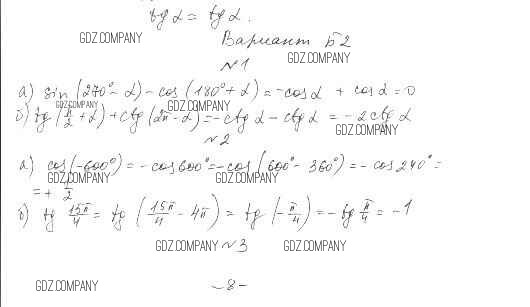 tg α = tg α.
GDZ.COMPANY
Вариант Б2
GDZ.COMPANY
№1
а) sin (270° - α) - cos (180° + α) = -cos α + cos α = 0
GDZ.COMPANY GDZ.COMPANY
б) tg (π/2 + α) + ctg (2π - α) = -ctg α - ctg α = -2ctg α
GDZ.COMPANY
№2
а) cos(-600°) = -cos 600° = -cos (600° - 360°) = -cos 240° =
GDZ.COMPANY GDZ.COMPANY
= + 1/2
б) tg 15π/4 = tg (15π/4 - 4π) = tg (-π/4) = -tg π/4 = -1
GDZ.COMPANY №3 GDZ.COMPANY
GDZ.COMPANY
-8-